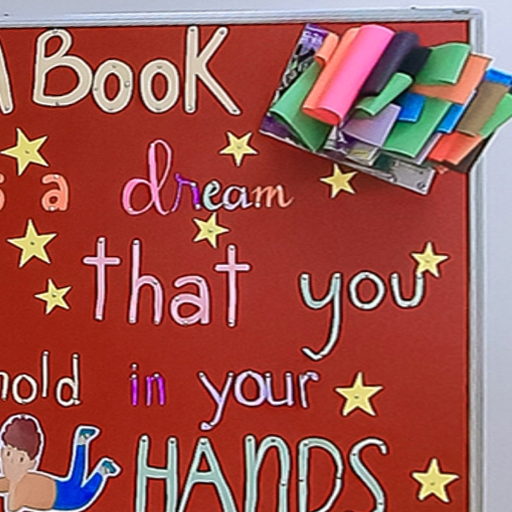 A BOOK
s a dream
that you
hold in your
HANDS